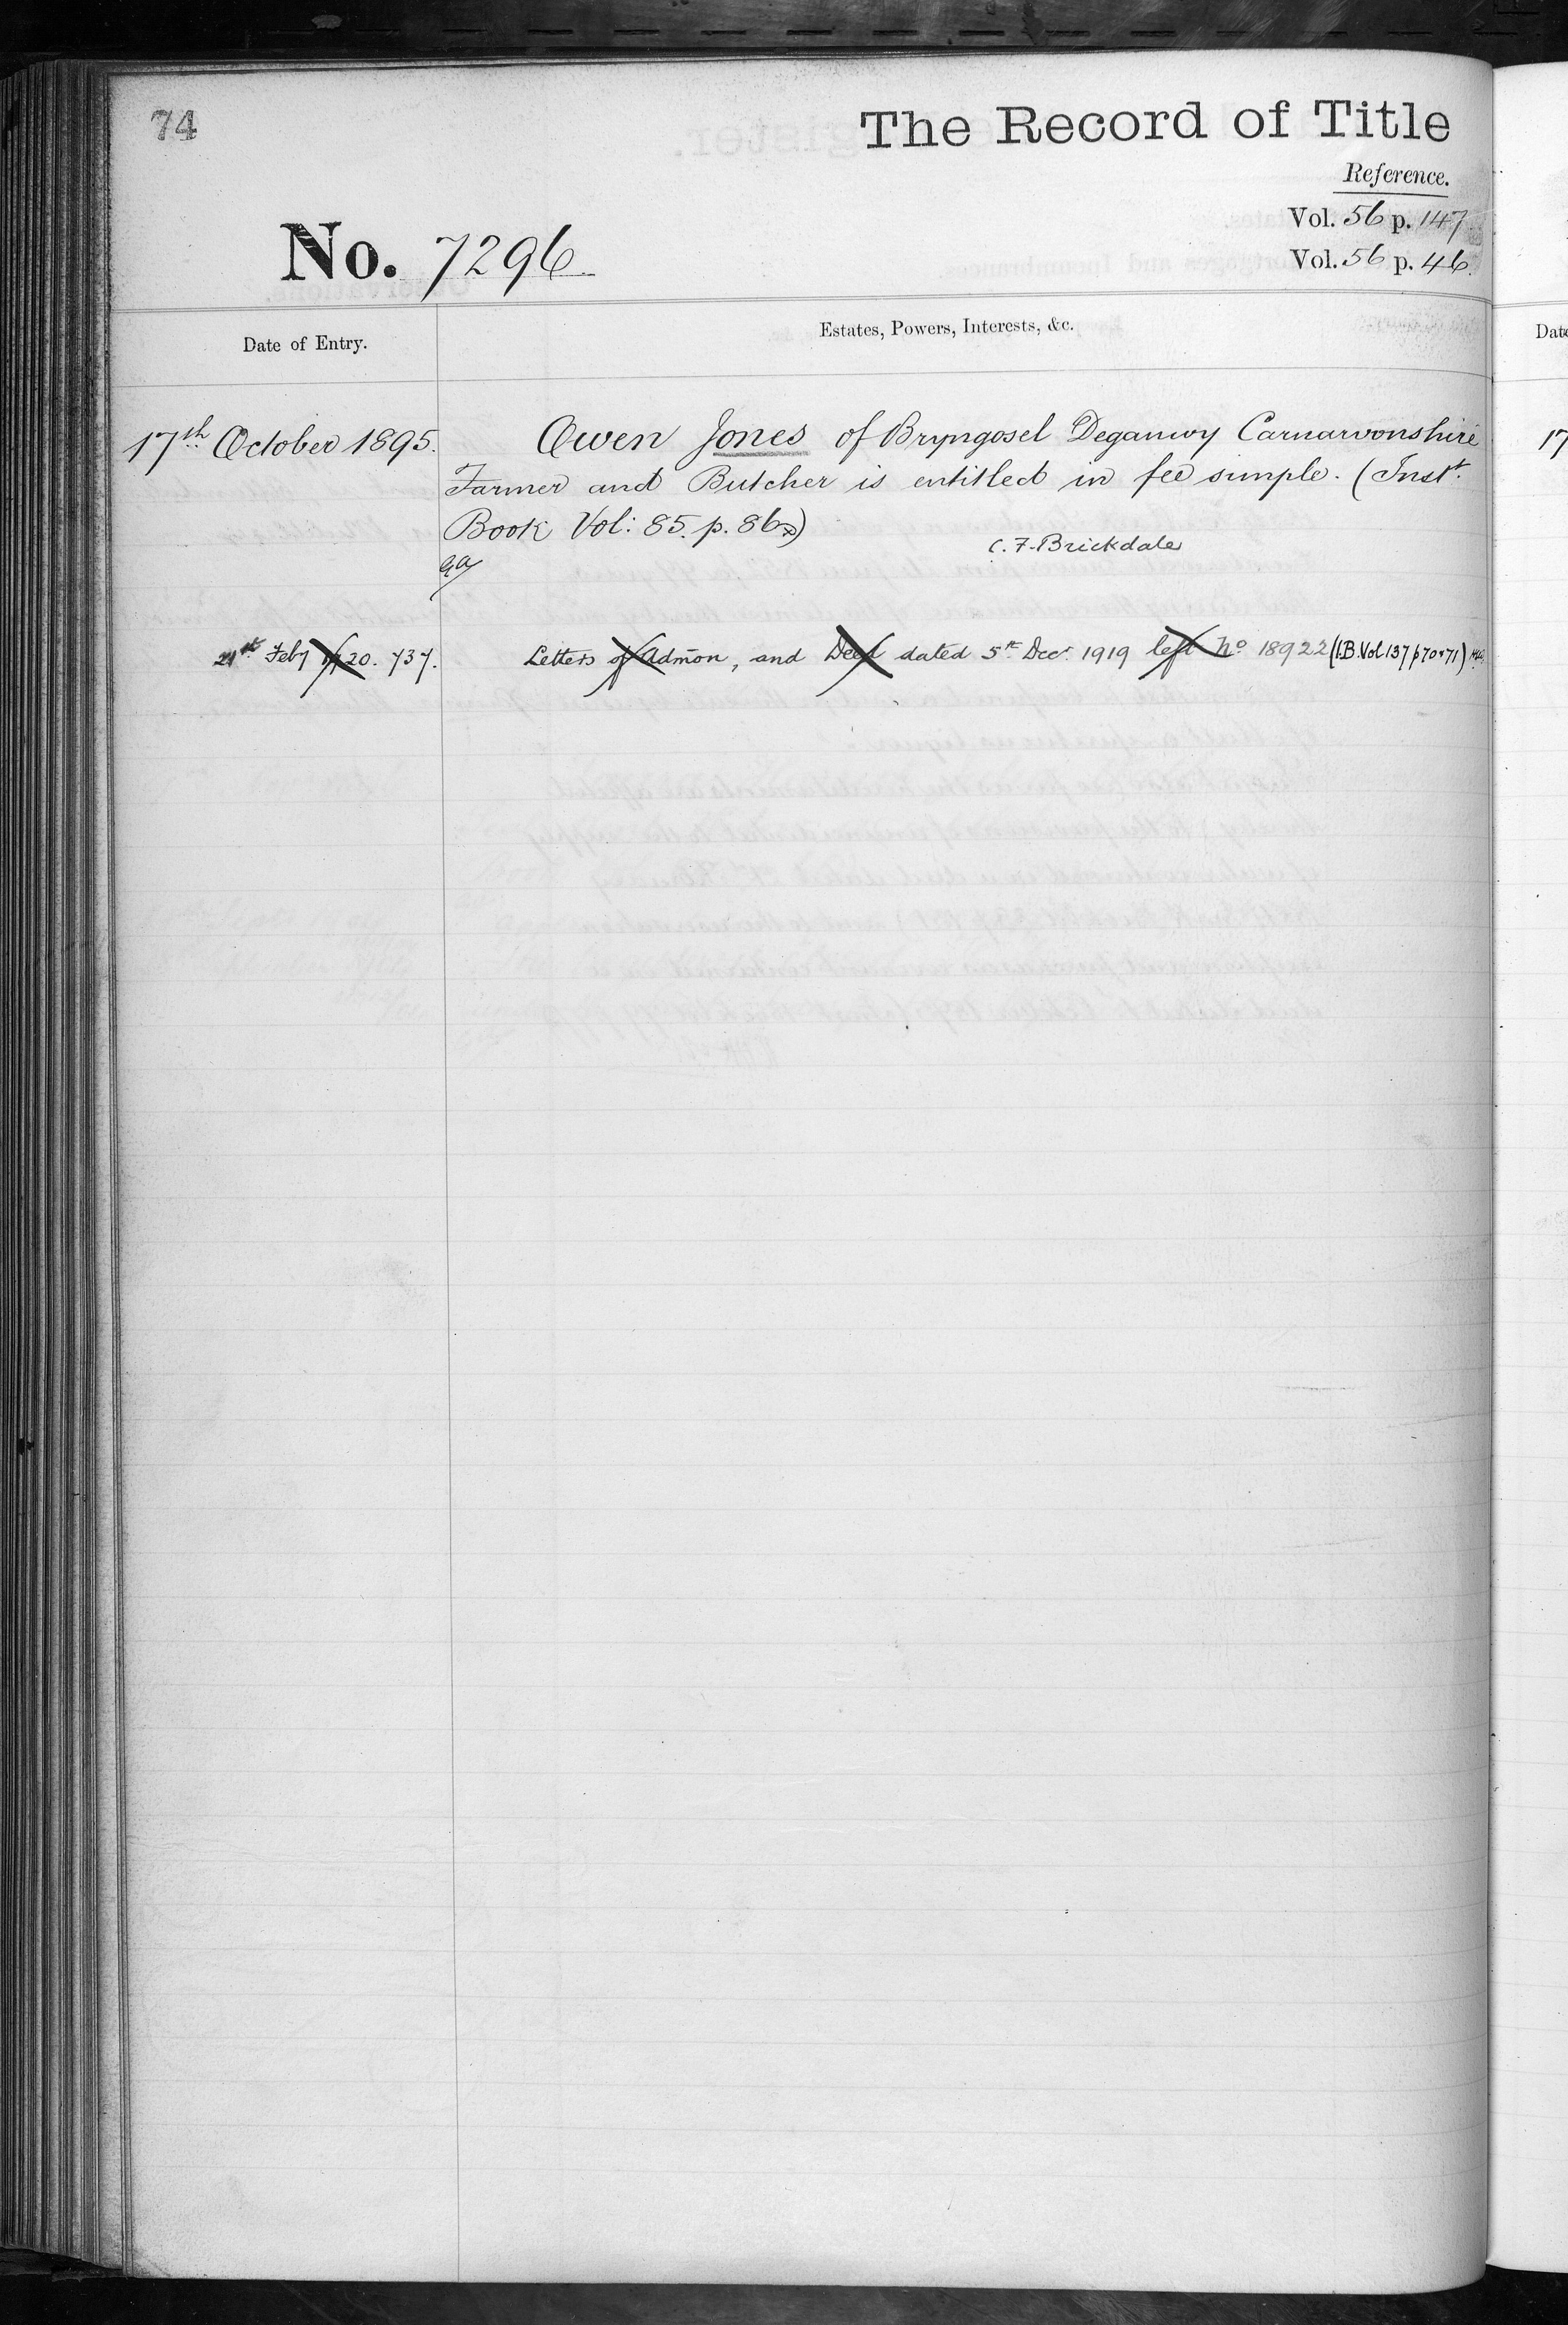 74
The Record of Title
Reference.
Vol. 56 p. 147
Vol. 56 p. 46
No. 7296
Date of Entry.
Estates, Powers, Interests, &c.
17th October 1895.
Owen Jones of Bryngosel Deganwy Carnarvonshire
Farmer and Butcher is entitled in fee simple. (Inst.
Book Vol: 85. p. 86)
C. F. Brickdale
21st Feby 1920. 737.
Letters of Admon, and Deed dated 5th Decr. 1919 left No 18922 (I.B. Vol 137 p 70+71)
Date
17